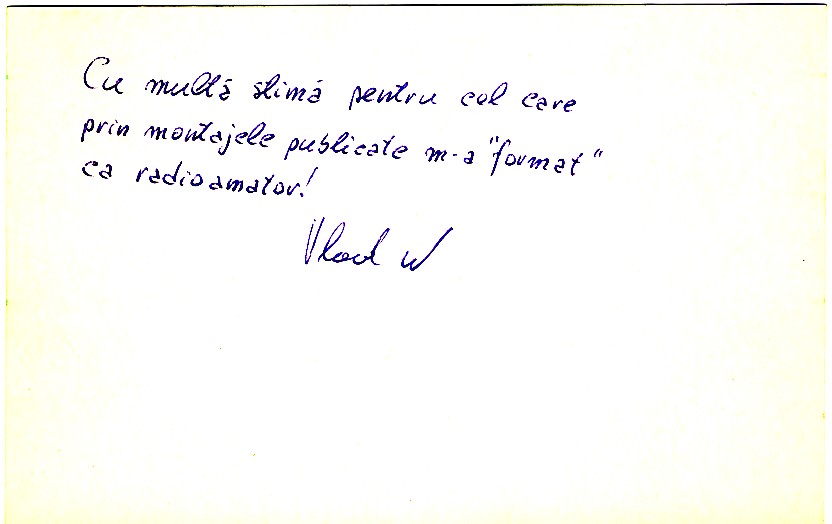 Cu multă stimă pentru cel care
prin montajele publicate m-a "format"
ca radioamator!
Vlad